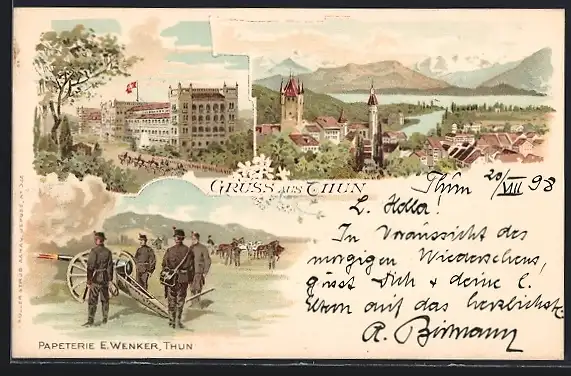 GRUSS AUS THUN
Thun 20/VIII 98
L. Hedla!
In Voraussicht des
morgigen Wiedersehens,
grüsst Dich + deine l.
Eltern auf das herzlichste
R. Bermann
PAPETERIE E. WENKER, THUN